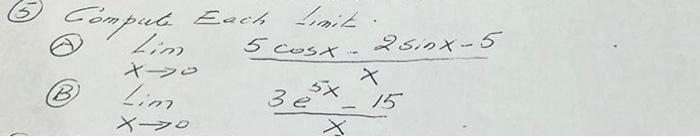 ⑤ Compute Each Limit.
Ⓐ Lim x→0 (5 cosx - 2 sinx - 5)/x
Ⓑ Lim x→0 (3e^5x - 15)/x